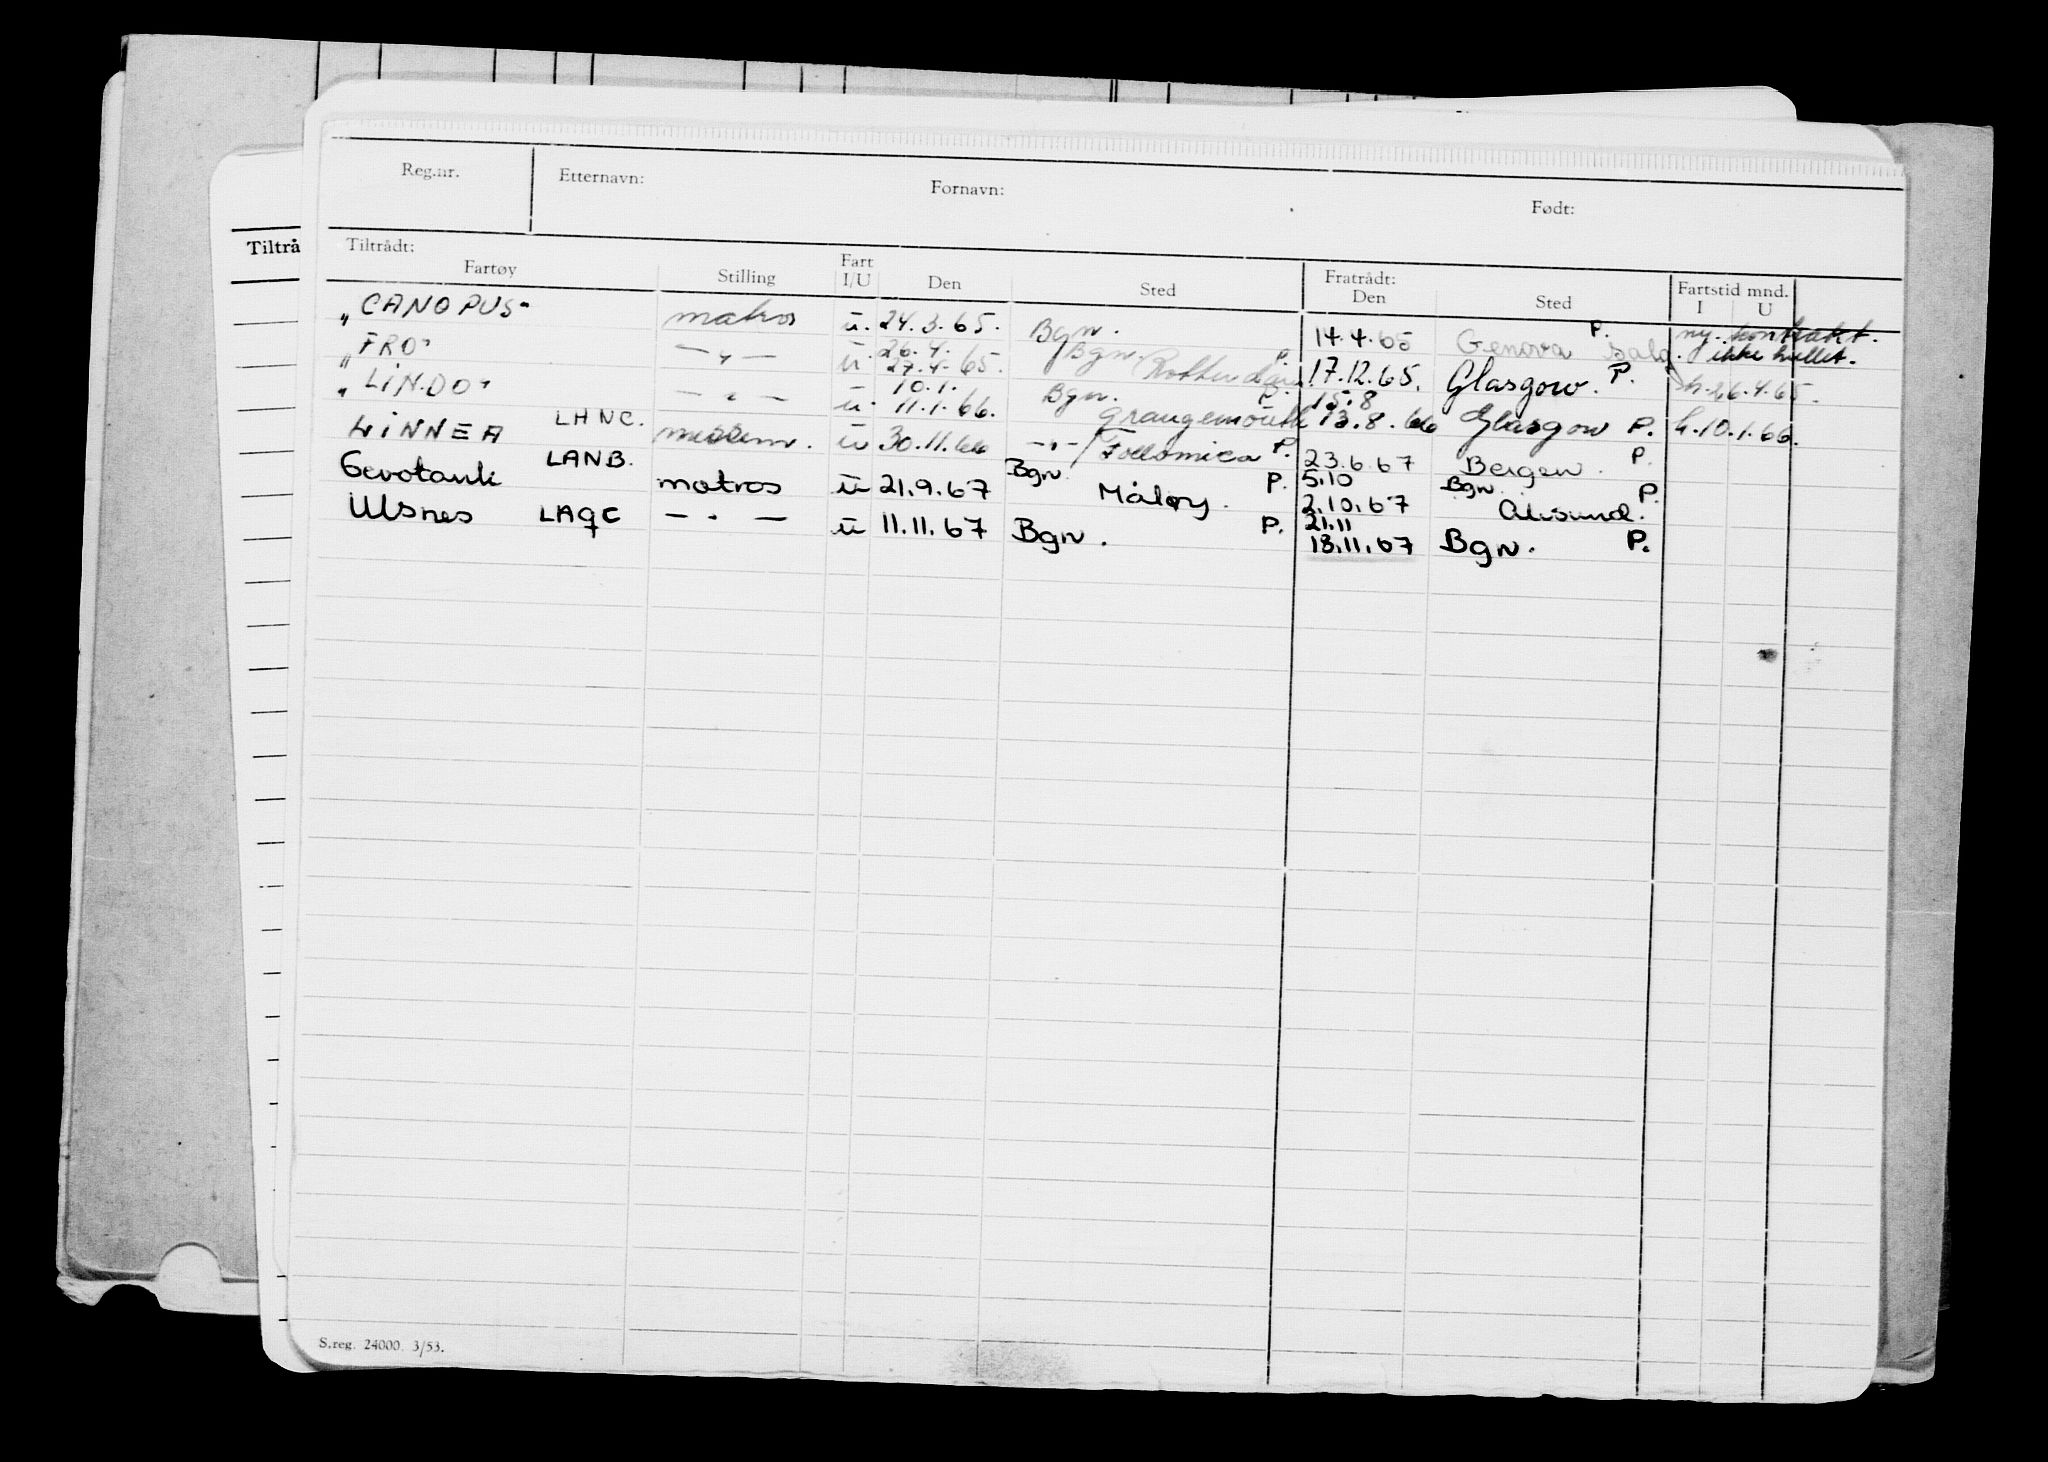 Reg.nr. Etternavn: Fornavn: Født:
Tiltrå
Tiltrådt: Fratrådt:
Fartøy Stilling Fart I/U Den Sted Den Sted Fartstid mnd. I U
"CANOPUS" matros u. 24.3.65. Bgn. 14.4.65 Genova P. ny kontrakt. ikke hullet.
"FRO" — " — u 26.4. 27.4.65. Bgn. Rotterdam P. 17.12.65. Glasgow. P. h. 26.4.65.
"LINDO" — " — u. 10.1. 11.1.66. Bgn. Grangemouth P. 15.8 13.8.66 Glasgow P. h. 10.1.66.
LINNEA LHNC. u 30.11.66 — " — / P. 23.6.67 Bergen. P.
Gevotank LANB. matros u 21.9.67 Bgn. Måløy. P. 5.10 2.10.67 Bgn. Ålesund. P.
Ulsnes LAQC — " — u 11.11.67 Bgn. P. 21.11 18.11.67 Bgn. P.
S.reg. 24000. 3/53.